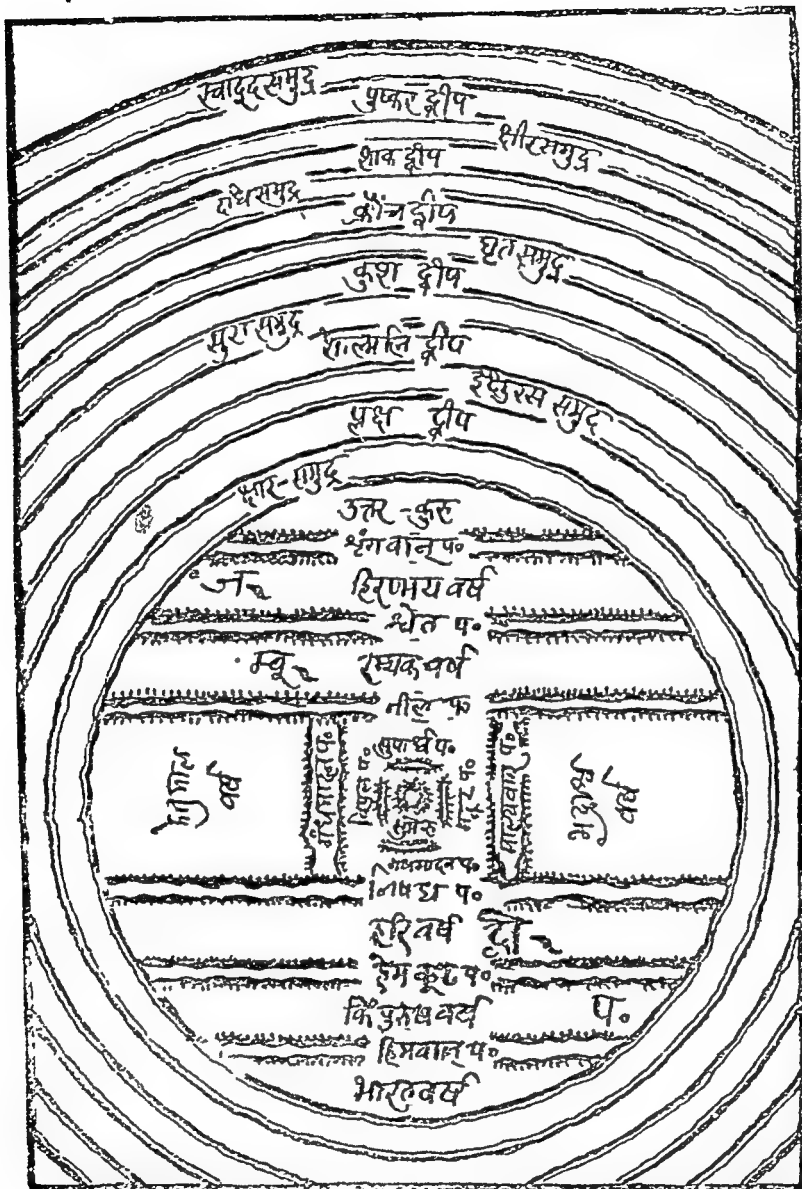 स्वादूदसमुद्र
पुष्कर द्वीप
क्षीरसमुद्र
शाकद्वीप
दधिसमुद्र
क्रौंचद्वीप
घृतसमुद्र
कुश द्वीप
सुरासमुद्र
शाल्मलि द्वीप
इक्षुरस समुद्र
प्लक्ष द्वीप
क्षार-समुद्र
उत्तर-कुरु
शृंगवान् प॰
ज
हिरण्मय वर्ष
श्वेत प॰
म्बू
रम्यकवर्ष
नील प॰
केतुमाल वर्ष
गंधमादन प॰
विपुल प॰
सुपार्श्व प॰
सुमेरु
माल्यवान् प॰
भद्राश्व वर्ष
गंधमादन प॰
निषध प॰
हरि वर्ष द्वी
हेमकूट प॰
किंपुरुष वर्ष प॰
हिमवान् प॰
भारतवर्ष